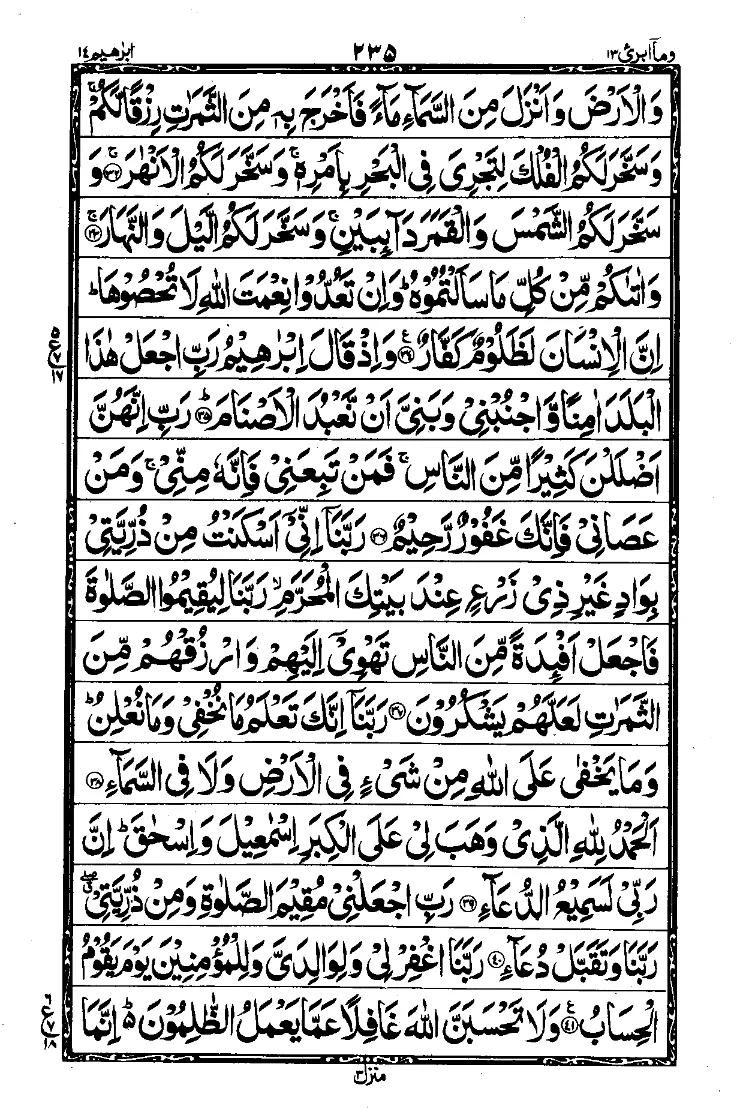 ومآابرئ ١٣
٢٣٥
ابرٰهيم ١٤
وَالْاَرْضَ وَاَنْزَلَ مِنَ السَّمَآءِ مَآءً فَاَخْرَجَ بِهٖ مِنَ الثَّمَرٰتِ رِزْقًا لَّكُمْ ۚ
وَسَخَّرَ لَكُمُ الْفُلْكَ لِتَجْرِىَ فِى الْبَحْرِ بِاَمْرِهٖ ۚ وَسَخَّرَ لَكُمُ الْاَنْهٰرَ ۚ ﴿٣٢﴾ وَ
سَخَّرَ لَكُمُ الشَّمْسَ وَالْقَمَرَ دَآئِبَيْنِ ۚ وَسَخَّرَ لَكُمُ الَّيْلَ وَالنَّهَارَ ۚ ﴿٣٣﴾
وَاٰتٰىكُمْ مِّنْ كُلِّ مَا سَاَلْتُمُوْهُ ؕ وَاِنْ تَعُدُّوْا نِعْمَتَ اللّٰهِ لَا تُحْصُوْهَا ؕ
اِنَّ الْاِنْسَانَ لَظَلُوْمٌ كَفَّارٌ ﴿٣٤﴾ ع وَاِذْ قَالَ اِبْرٰهِيْمُ رَبِّ اجْعَلْ هٰذَا
٥
ع
٧
١٧
الْبَلَدَ اٰمِنًا وَّاجْنُبْنِىْ وَبَنِىَّ اَنْ نَّعْبُدَ الْاَصْنَامَ ؕ ﴿٣٥﴾ رَبِّ اِنَّهُنَّ
اَضْلَلْنَ كَثِيْرًا مِّنَ النَّاسِ ۚ فَمَنْ تَبِعَنِىْ فَاِنَّهٗ مِنِّىْ ۚ وَمَنْ
عَصَانِىْ فَاِنَّكَ غَفُوْرٌ رَّحِيْمٌ ﴿٣٦﴾ رَبَّنَاۤ اِنِّىْۤ اَسْكَنْتُ مِنْ ذُرِّيَّتِىْ
بِوَادٍ غَيْرِ ذِىْ زَرْعٍ عِنْدَ بَيْتِكَ الْمُحَرَّمِ ۙ رَبَّنَا لِيُقِيْمُوا الصَّلٰوةَ
فَاجْعَلْ اَفْئِدَةً مِّنَ النَّاسِ تَهْوِىْۤ اِلَيْهِمْ وَارْزُقْهُمْ مِّنَ
الثَّمَرٰتِ لَعَلَّهُمْ يَشْكُرُوْنَ ﴿٣٧﴾ رَبَّنَاۤ اِنَّكَ تَعْلَمُ مَا نُخْفِىْ وَمَا نُعْلِنُ ؕ
وَمَا يَخْفٰى عَلَى اللّٰهِ مِنْ شَىْءٍ فِى الْاَرْضِ وَلَا فِى السَّمَآءِ ﴿٣٨﴾
اَلْحَمْدُ لِلّٰهِ الَّذِىْ وَهَبَ لِىْ عَلَى الْكِبَرِ اِسْمٰعِيْلَ وَاِسْحٰقَ ؕ اِنَّ
رَبِّىْ لَسَمِيْعُ الدُّعَآءِ ﴿٣٩﴾ رَبِّ اجْعَلْنِىْ مُقِيْمَ الصَّلٰوةِ وَمِنْ ذُرِّيَّتِىْ ۖ
رَبَّنَا وَتَقَبَّلْ دُعَآءِ ﴿٤٠﴾ رَبَّنَا اغْفِرْ لِىْ وَلِوَالِدَىَّ وَلِلْمُؤْمِنِيْنَ يَوْمَ يَقُوْمُ
الْحِسَابُ ﴿٤١﴾ ع وَلَا تَحْسَبَنَّ اللّٰهَ غَافِلًا عَمَّا يَعْمَلُ الظّٰلِمُوْنَ ؕ اِنَّمَا
٦
ع
٧
١٨
منزل ٣